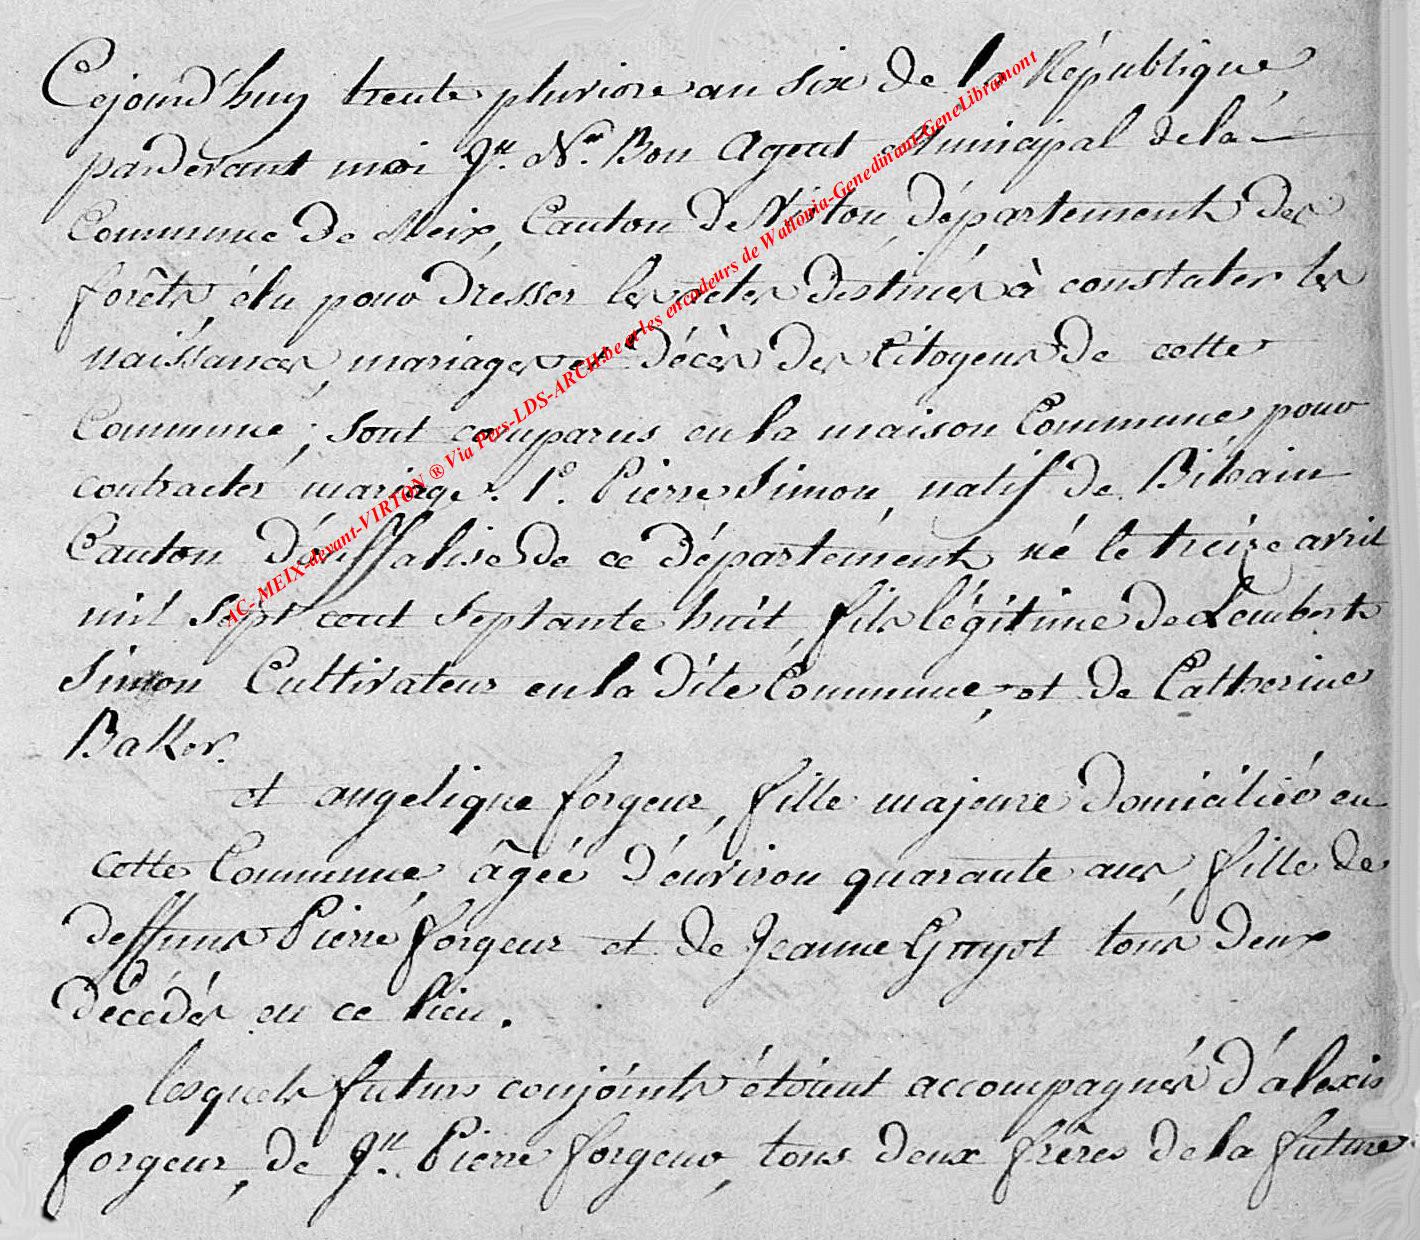 Cejourd'huy trente pluviose an six de la République,
pardevant moi Jn. Ns. Bon Agent Municipal de la
Commune de Meix, Canton de Virton, département des
forêts, élu pour dresser les actes destinés à constater les
naissances, mariages et décès des Citoyens de cette
Commune; sont comparus en la maison Commune pour
contracter mariage. 1°. Pierre Simon, natif de Bihain
Canton d'éuffalise de ce département, né le treize avril
mil sept cent septante huit, fils légitime de Lembert
Simon Cultivateur en la dite Commune, et de Catherine
Baker.
et angelique forgeur, fille majeure domiciliée en
cette Commune, âgée d'environ quarante ans, fille de
deffuns Pierre forgeur et de Jeanne Guyot tous deux
décédés en ce lieu.
lesquels futurs conjoints étoient accompagnés d'alexis
forgeur, de Jn. Pierre forgeur, tous deux frères de la future
AC- MEIX-devant-VIRTON ® Via Pers-LDS-ARCH.be et les encodeurs de Wallonia-Genedinant-GeneLibramont